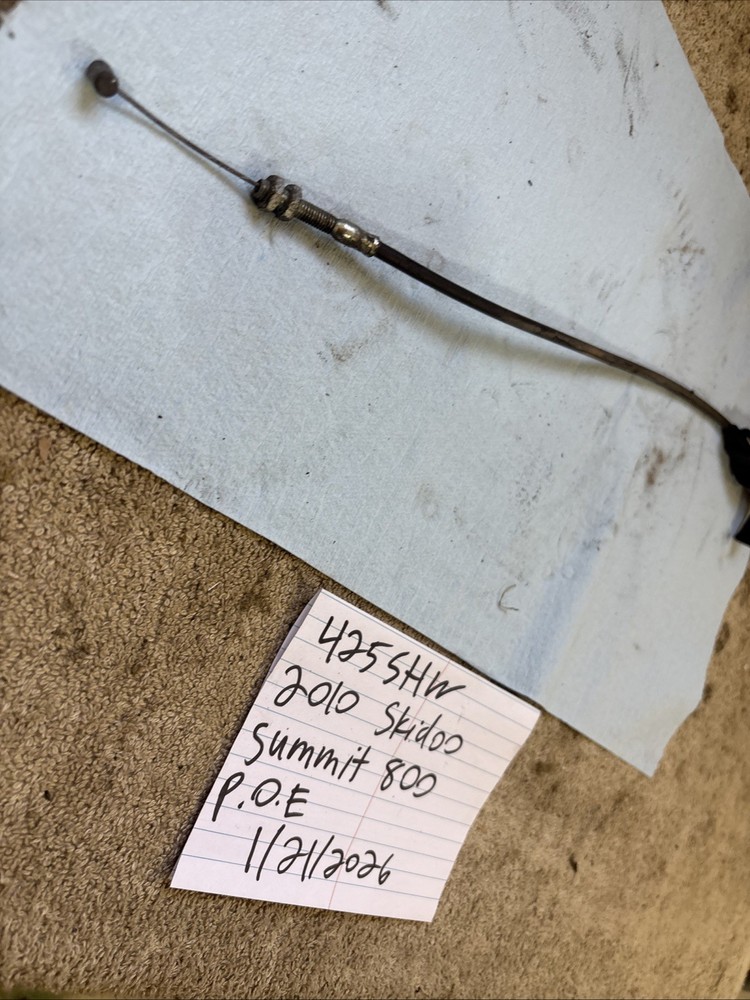 425SHW
2010 Skidoo
Summit 800
P.O.E
1/21/2026